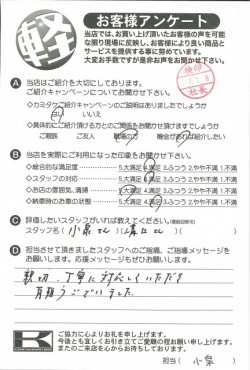 軽
お客様アンケート
当店では、お買い上げ頂いたお客様の声を可能
な限り現場に反映し、お客様により良い商品と
サービスを提供する事に努めています。
大変お手数ですが是非お声をお聞かせ下さい。
検印
社長
A 当店はご紹介を大切にしております。
ご紹介キャンペーンについてお聞かせ下さい
◇カミタケご紹介キャンペーンのご説明はありましたでしょうか
はい いいえ
◇具体的にご紹介頂ける方とのご関係をお聞かせ頂けますでしょうか
ご親族 ご友人 職場の方 機会があれば紹介したい
B 当店を実際にご利用になった印象をお聞かせ下さい
◇総合的な満足度 5.大満足 4.満足 3.ふつう 2.やや不満 1.不満
◇スタッフの対応 5.大満足 4.満足 3.ふつう 2.やや不満 1.不満
◇お店の雰囲気、清掃 5.大満足 4.満足 3.ふつう 2.やや不満 1.不満
◇納車時のお車の状態 5.大満足 4.満足 3.ふつう 2.やや不満 1.不満
C 評価したいスタッフがいれば教えてください。(複数回答可)
スタッフ名( 小泉さん )( 溝口さん )
D 担当させて頂きましたスタッフへのご指導、ご指導メッセージを
お願いします。応援メッセージもぜひお願いします。
親切、丁寧に対応していただき
有難うございました。
K
ご協力に心よりお礼を申し上げます。
今後とも宜しくお引き立てご愛顧の程お願い申し上げます。
またのご来店を心からお待ちしております。
担当( 小泉 )